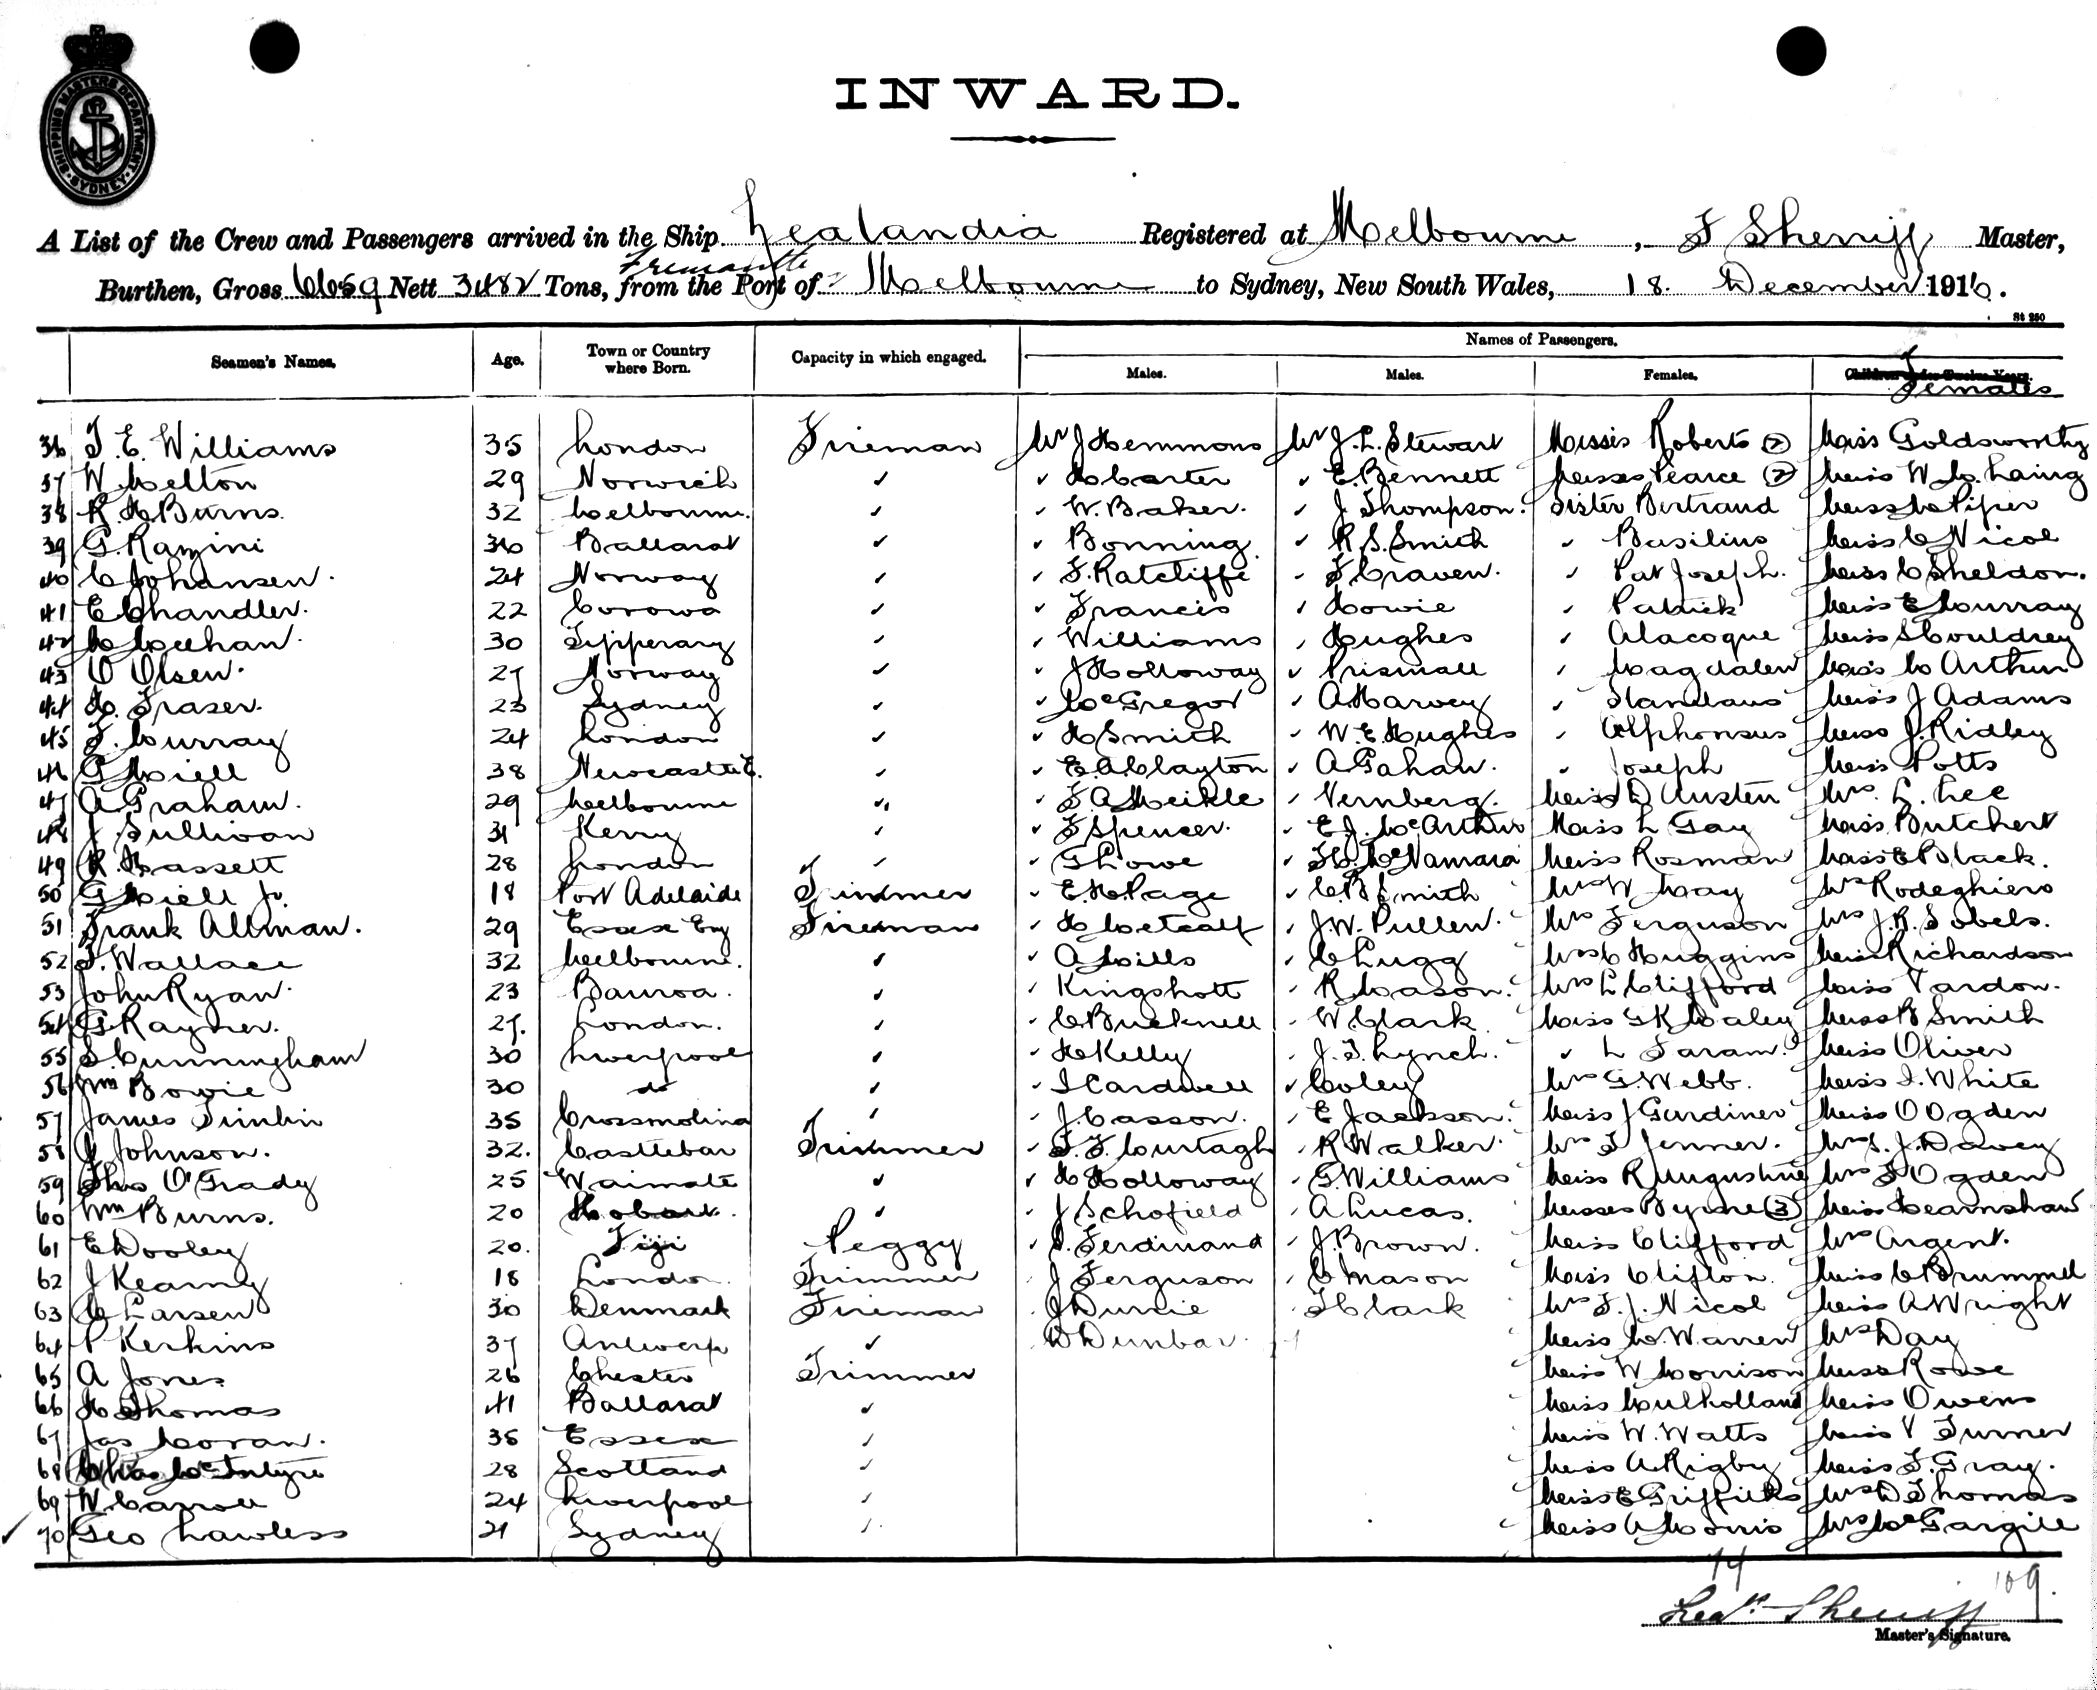 SHIPPING MASTERS DEPARTMENT. SYDNEY.
INWARD.
A List of the Crew and Passengers arrived in the Ship Zealandia Registered at Melbourne, J Sherriff Master,
Fremantle
Burthen, Gross 6659 Nett 3482 Tons, from the Port of Melbourne to Sydney, New South Wales, 18. December 1916.
St 250
Seamen's Names. Age. Town or Country where Born. Capacity in which engaged. Names of Passengers.
Males. Males. Females. Children under Twelve Years. Females
36 T. E. Williams 35 London Fireman Mr J Hemmons Mr J. L. Stewart Misses Roberts (2) Miss Goldsworthy
37 W Melton 29 Norwich ✓ ✓ H Carter ✓ E. Bennett Misses Pearce (2) Miss W M. Laing
38 R. H Burns. 32 Melbourne. ✓ ✓ W. Baker. ✓ J Thompson. Sister Bertrand Miss M Piper
39 G. Ramini 36 Ballarat ✓ ✓ Bonning ✓ R. S. Smith ✓ Basilius Miss C Nicol
40 C Johansen. 24 Norway ✓ ✓ F. Ratcliffe ✓ F Craven. ✓ Pat Joseph. Miss C Sheldon.
41 E Chandler. 22 Corowa ✓ ✓ Francis ✓ Howie ✓ Patrick Miss E Murray
42 M Meehan. 30 Tipperary ✓ ✓ Williams ✓ Hughes ✓ Alacoque Miss S Couldrey
43 O Olsen. 27 Norway ✓ ✓ J Holloway ✓ Prismall ✓ Magdalen Miss M Arthur
44 H. Fraser. 23 Sydney ✓ ✓ McGregor ✓ A Harvey ✓ Stanilaus Miss J Adams
45 F. Murray 24 London ✓ ✓ H Smith ✓ W. E. Hughes ✓ Alphonsus Miss J. Ridley
46 G Miell 38 Newcastle E. ✓ ✓ E. A. Clayton ✓ A Gahan. ✓ Joseph Miss Potts
47 A Graham. 29 Melbourne ✓ ✓ F. A Meikle ✓ Nernberg. Miss D Austen Mrs. L. Lee
48 J Sullivan 31 Kerry ✓ ✓ F Spencer. ✓ E. J. McArthur Miss L Gay Miss Butchert
49 R. Hassett 28 London ✓ ✓ G Lowe ✓ H. McNamara Miss Rosman Miss E Black.
50 G Miell Jr. 18 Port Adelaide Trimmer ✓ E. H. Page ✓ C. B Smith Mrs W May Mrs Rodeghiero
51 Frank Altman. 29 Essex Eng Fireman ✓ H Metcalf ✓ J. W. Pullen. Mrs Ferguson Mrs J. R. Sobels.
52 T. Wallace 32 Melbourne. ✓ ✓ A Mills ✓ C Lugg Mrs C Huggins Miss Richardson
53 John Ryan. 23 ✓ ✓ Kingshott ✓ R Mason. Mrs L Clifford Miss Vardon.
54 G Rayner. 27. London. ✓ ✓ C Bucknell ✓ W. Clark Miss G K Maley Miss B Smith
55 S. Cunningham 30 Liverpool ✓ ✓ H Kelly ✓ J. T. Lynch. ✓ L Miss Oliver
56 Wm Bowie 30 do ✓ ✓ I Cardwell ✓ Coley Mrs G. Webb. Miss I. White
57 James Timlin 35 Crossmolina ✓ ✓ J. Casson. ✓ E Jackson. Miss J Gardiner Miss O Ogden
58 J Johnson. 32. Castlebar Trimmer ✓ T. F. Murtagh ✓ R Walker. Mrs F Jenner. Mrs S. J. Davey
59 Thos O'Grady 25 Waimate ✓ ✓ H Holloway ✓ G. Williams Miss R Augustine Mrs F Ogden
60 Wm Burns. 20 Hobart. ✓ ✓ J Schofield ✓ A Lucas. Misses Byrne (3) Miss Hearnshaw
61 E Dooley 20. Fiji Peggy ✓ D. Ferdinand ✓ J. Brown. Miss Clifford Mrs Argent.
62 J Kearny 18 London. Trimmer ✓ J Ferguson ✓ C Mason Miss Clifton. Miss C Brummel
63 C Larsen 30 Denmark Fireman ✓ J Dunie ✓ F Clark Mrs F. J. Nicol Miss A Wright
64 P Kerkins 37 Antwerp ✓ D Dunbar. Miss M. Warren Mrs Day
65 A Jones 26 Chester Trimmer Miss W Morrison Miss Rowe
66 H Thomas 41 Ballarat ✓ Miss Mulholland Miss Owens
67 Jas Moran. 36 Essex ✓ Miss W. Watts Miss V Turner
68 Chas McIntyre 28 Scotland ✓ Miss A Rigby Miss F. Gray.
69 W. Carroll 24 Liverpool ✓ Miss E Griffiths Mrs D Thomas
✓ 70 Geo Lawless 21 Sydney ✓ Miss A Morris Mrs McGargill
74
109.
Sherriff
Master's Signature.